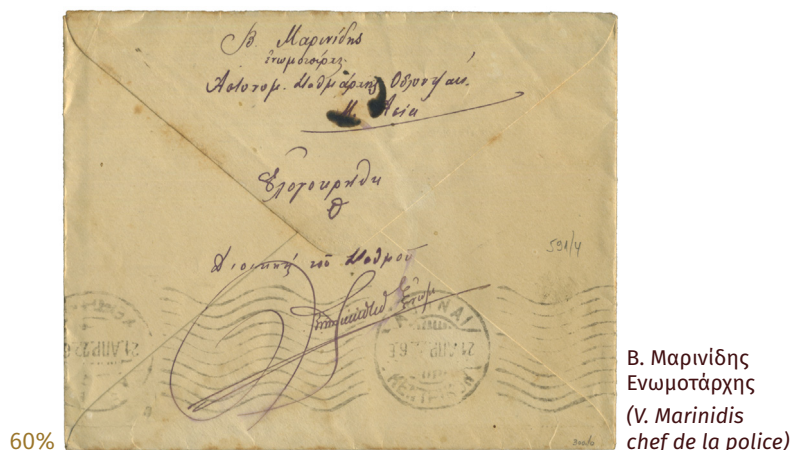 Β. Μαρινίδης
ἐνωμοτάρχης
Ἀστυνομ. Σταθμάρχης
Μ. Ἀσία
Ἐλογοκρήθη
Θ
Διοικητής τοῦ Σταθμοῦ
591/4
21.ΑΠΡ.22.6
ΑΘΗΝΑΙ
21.ΑΠΡ 6
Β. Μαρινίδης
Ενωμοτάρχης
(V. Marinidis
chef de la police)
60%